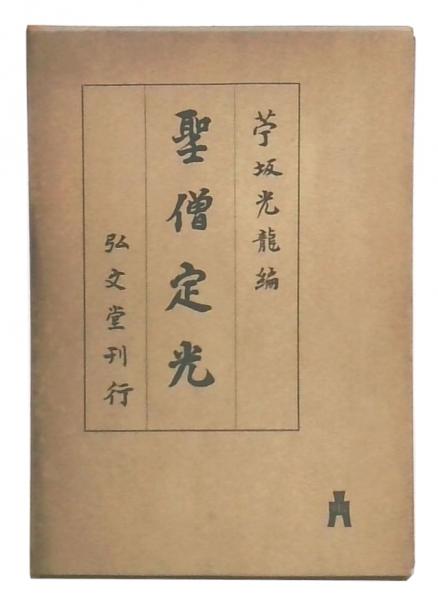 苧坂光龍編
聖僧定光
弘文堂刊行